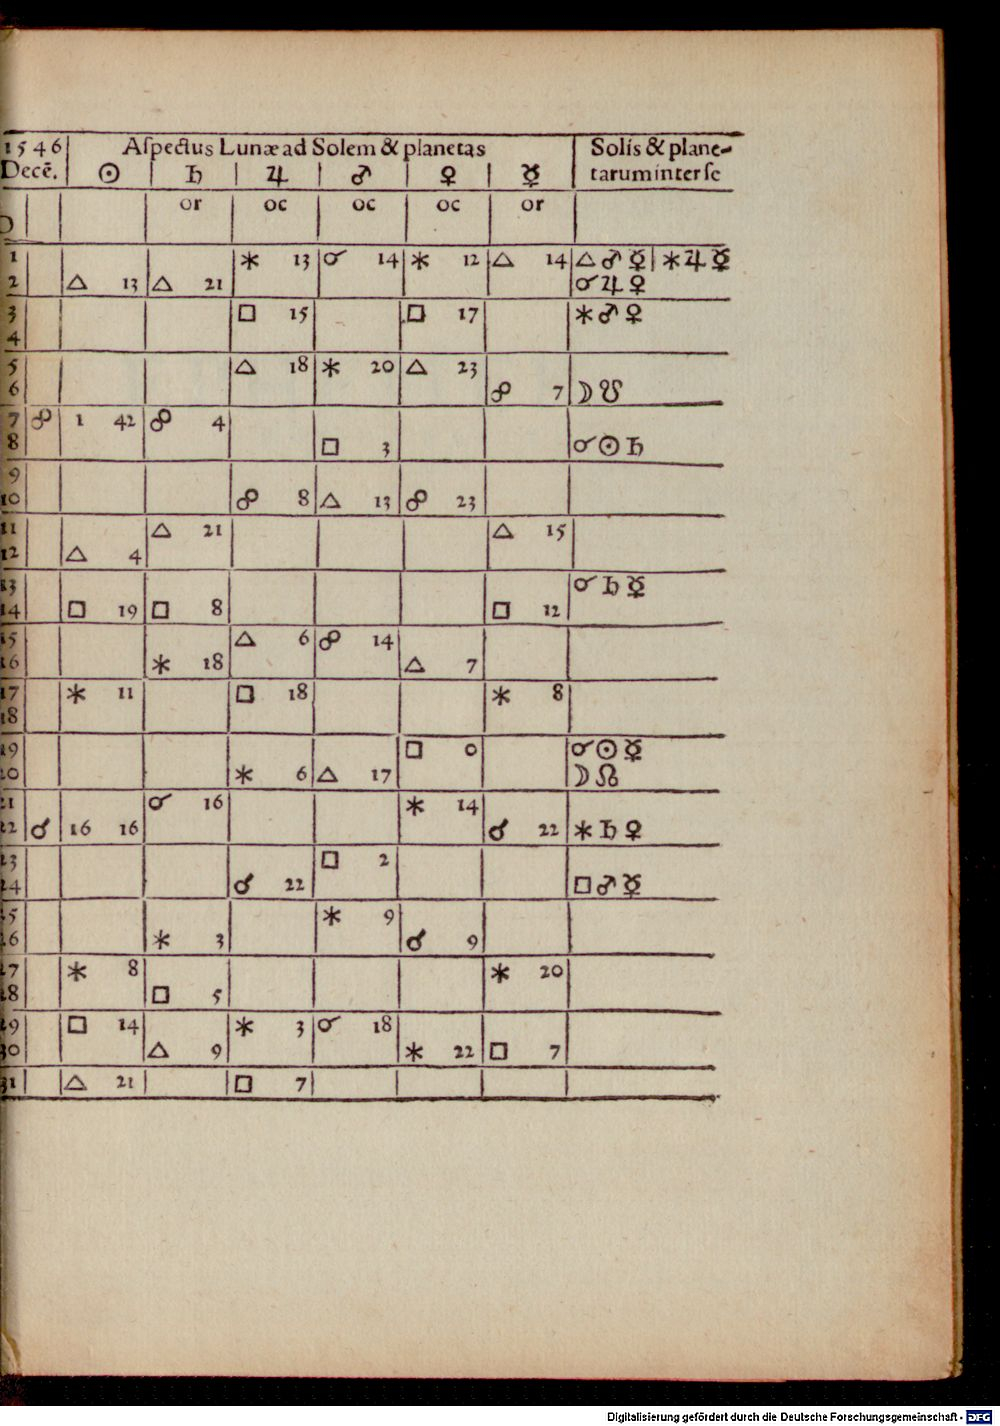 1546 | Aſpectus Lunæ ad Solem & planetas | Solis & plane-
Decē. | ☉ | ♄ | ♃ | ♂ | ♀ | ☿ | tarum inter ſe
or | oc | oc | oc | or
1 | ⚹ 13 | ☌ 14 | ⚹ 12 | △ 14 | △ ♂ ☿ | ⚹ ♃ ☿
2 | △ 13 | △ 21 | ☌ ♃ ♀
3 | □ 15 | □ 17 | ⚹ ♂ ♀
4
5 | △ 18 | ⚹ 20 | △ 23
6 | ☍ 7 | ☽ ☋
7 | ☍ | 1 42 | ☍ 4
8 | □ 3 | ☌ ☉ ♄
9
10 | ☍ 8 | △ 13 | ☍ 23
11 | △ 21 | △ 15
12 | △ 4
13 | ☌ ♄ ☿
14 | □ 19 | □ 8 | □ 12
15 | △ 6 | ☍ 14
16 | ⚹ 18 | △ 7
17 | ⚹ 11 | □ 18 | ⚹ 8
18
19 | □ 0 | ☌ ☉ ☿
20 | ⚹ 6 | △ 17 | ☽ ☊
21 | ☌ 16 | ⚹ 14
22 | ☌ | 16 16 | ☌ 22 | ⚹ ♄ ♀
23 | □ 2
24 | ☌ 22 | □ ♂ ☿
25 | ⚹ 9
26 | ⚹ 3 | ☌ 9
27 | ⚹ 8 | ⚹ 20
28 | □ 5
29 | □ 14 | ⚹ 3 | ☌ 18
30 | △ 9 | ⚹ 22 | □ 7
31 | △ 21 | □ 7
Digitalisierung gefördert durch die Deutsche Forschungsgemeinschaft - DFG